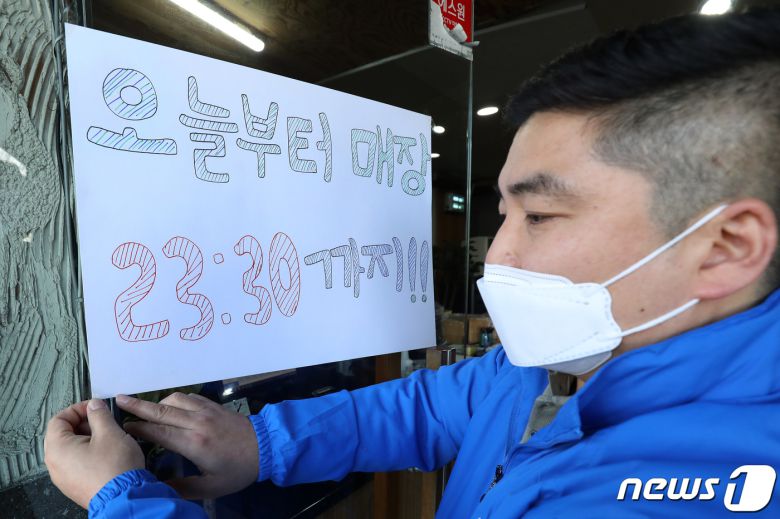 에스원
오늘부터 매장
23:30 까지!!!
news1